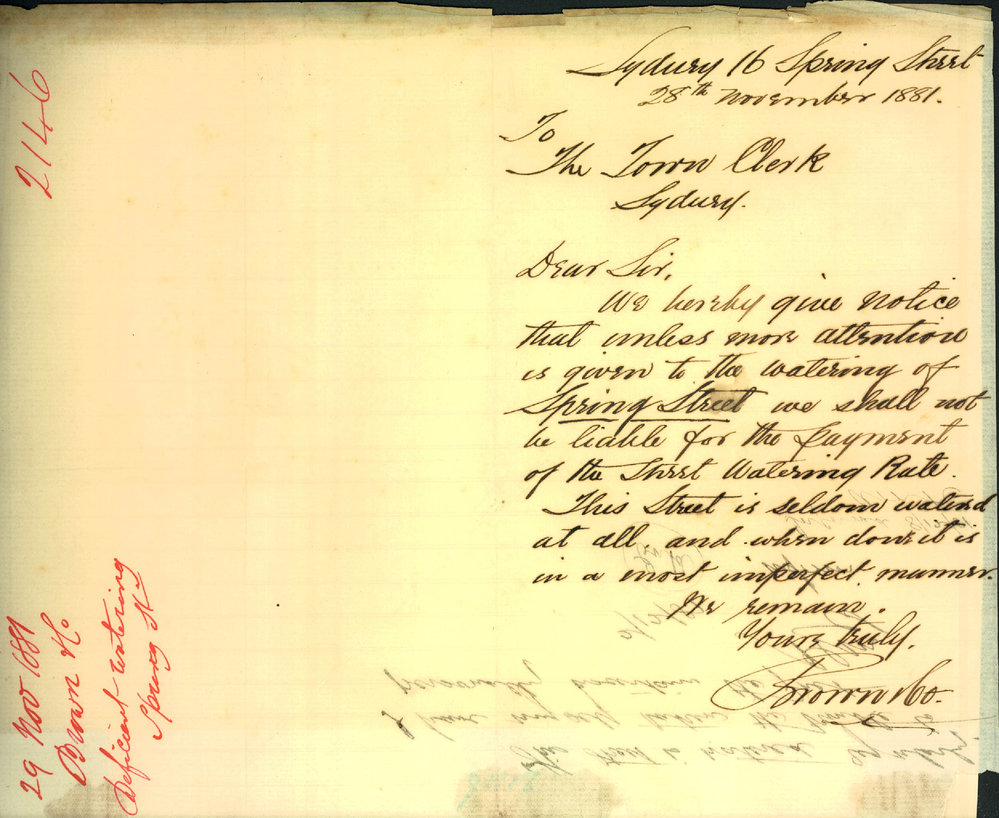 Sydney 16 Spring Street
28th November 1881.
To
The Town Clerk
Sydney.
Dear Sir,
We hereby give notice
that unless more attention
is given to the watering of
Spring Street we shall not
be liable for the payment
of the Street Watering Rate.
This Street is seldom waterd
at all, and when done it is
in a most imperfect manner.
We remain.
Yours truly.
Brown &Co.
2146
29 Nov 1881
Brown &Co
Deficient watering
Spring St